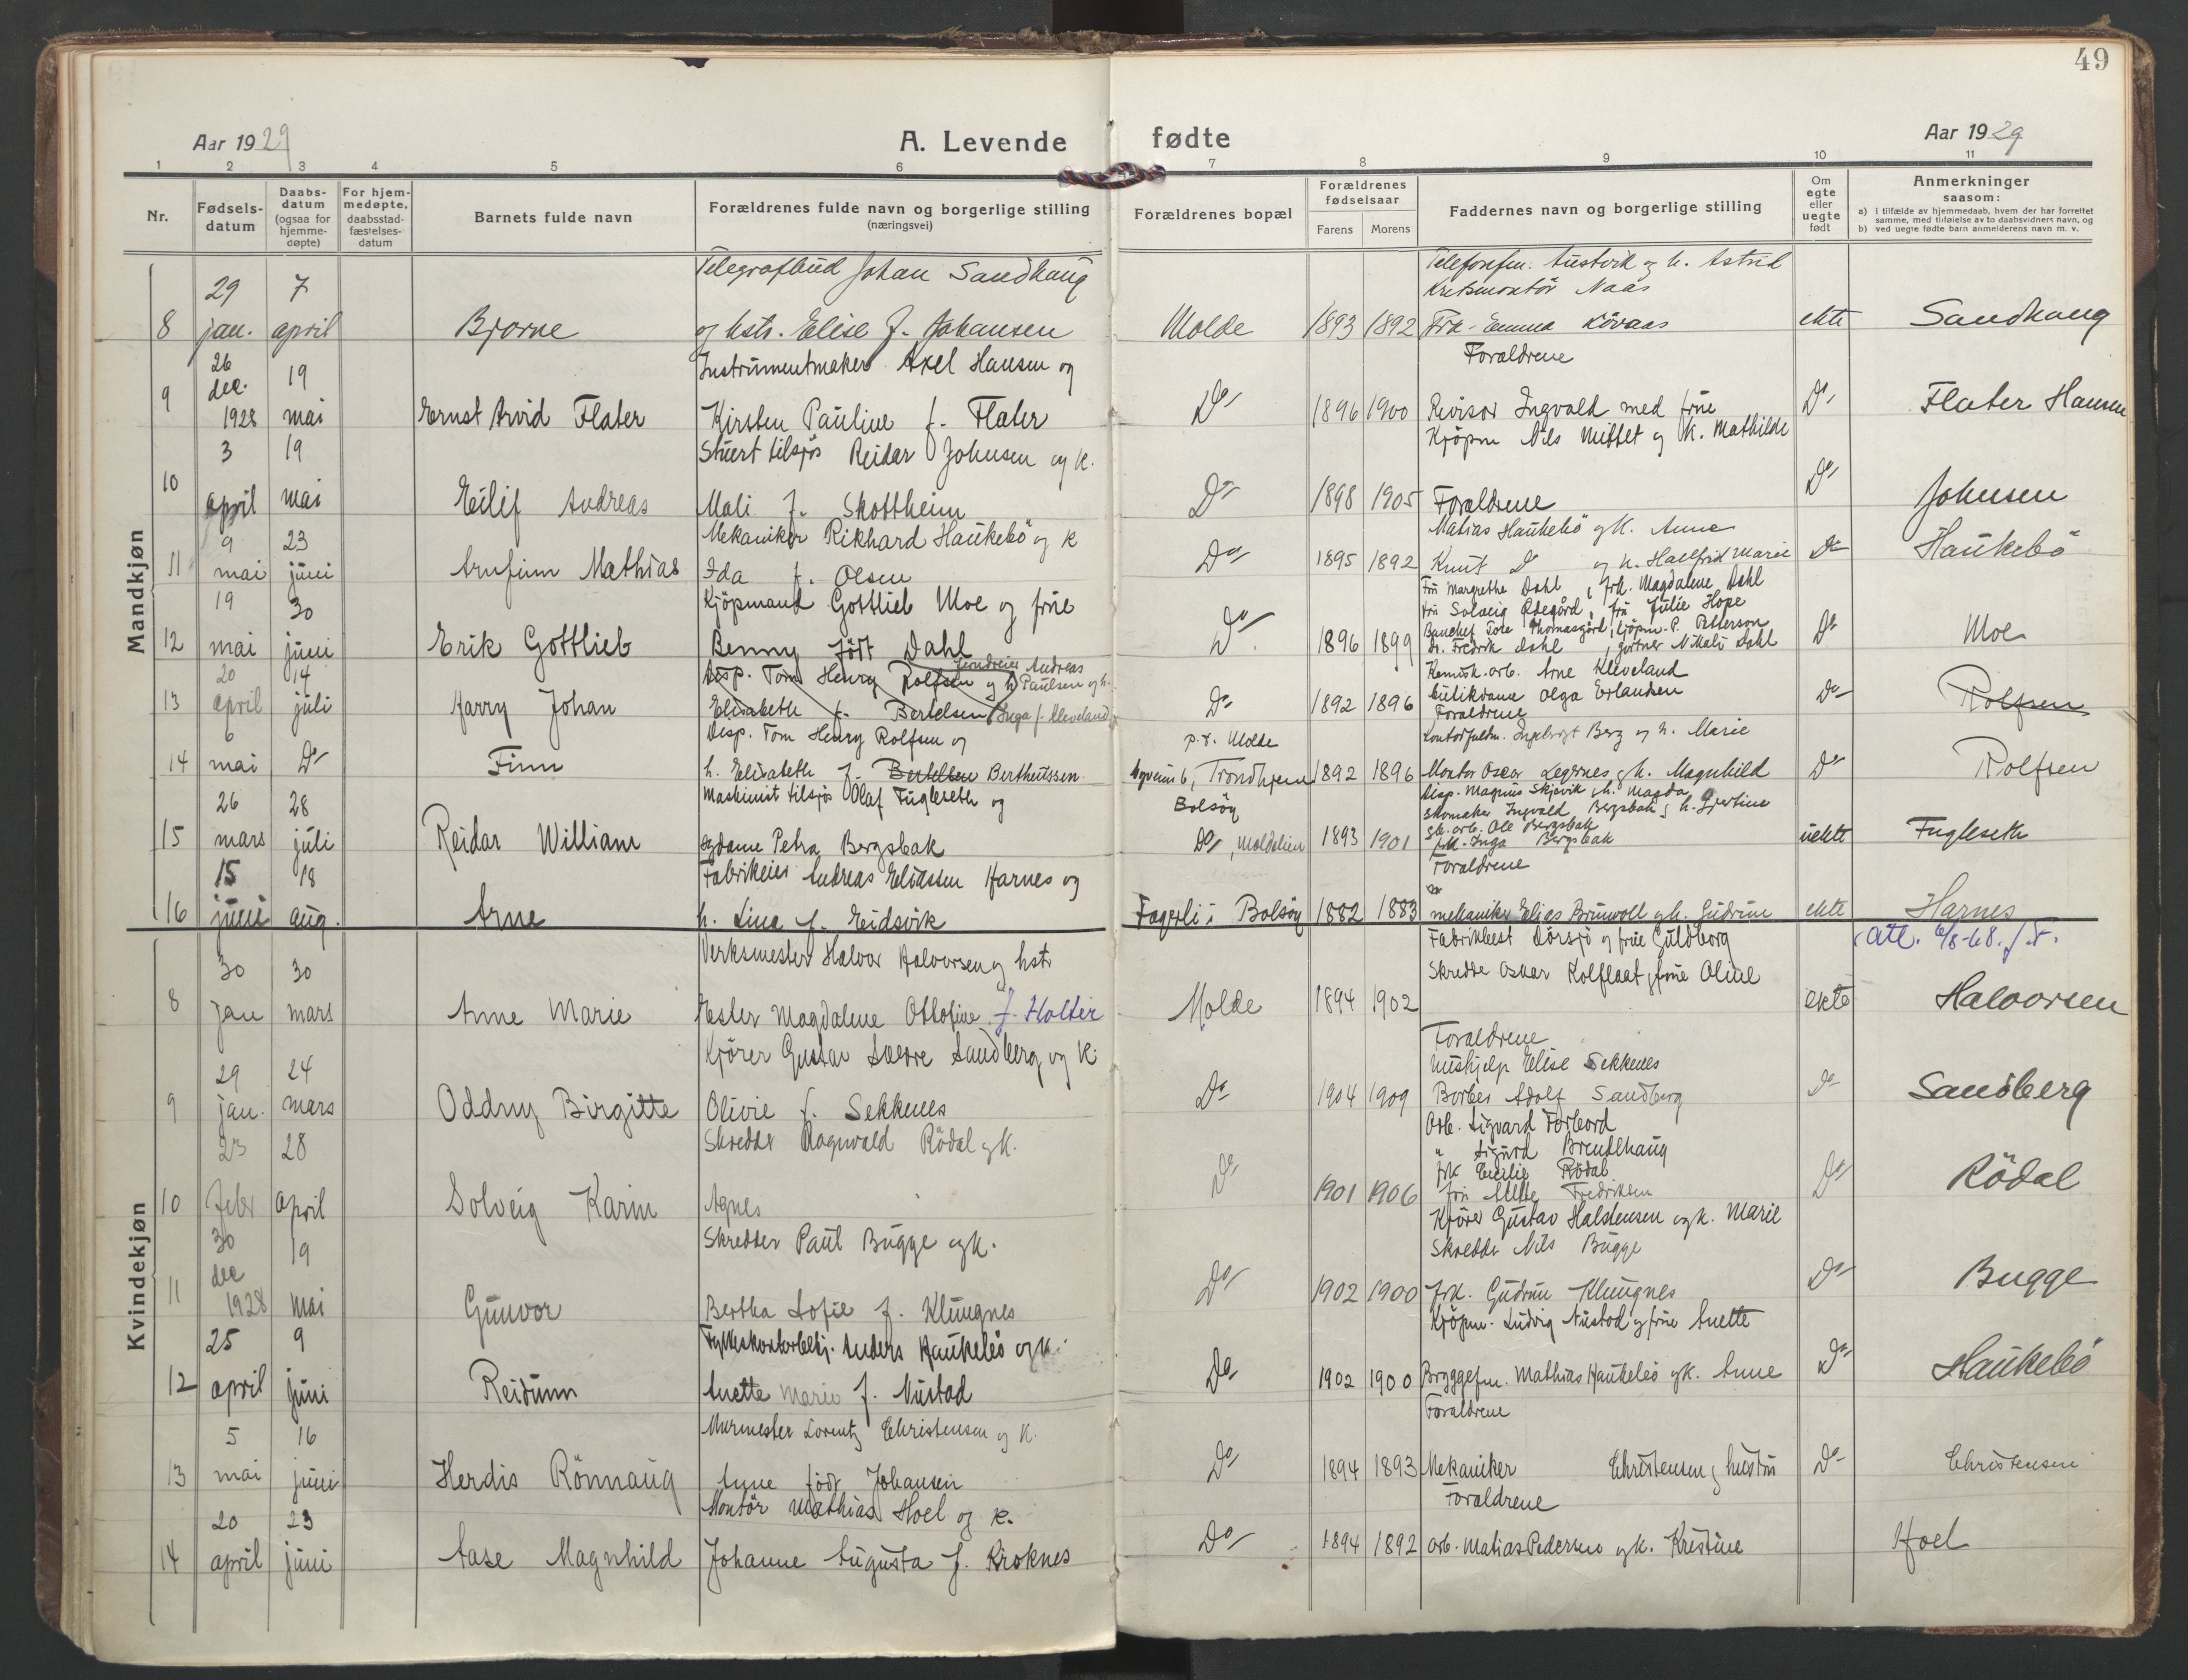 49
Aar 1929
A. Levende fødte
Aar 1929
1 2 3 4 5 6 7 8 9 10 11
Nr.
Fødsels-datum
Daabs-datum (ogsaa for hjemme-døpte)
For hjem-medøpte, daabsstad-fæstelses-datum
Barnets fulde navn
Forældrenes fulde navn og borgerlige stilling (næringsvei)
Forældrenes bopæl
Forældrenes fødselsaar
Farens Morens
Faddernes navn og borgerlige stilling
Om egte eller uegte født
Anmerkninger saasom:
a) i tilfælde av hjemmedaab, hvem der har forrettet samme, med tilføielse av to daabsvidners navn, og
b) ved uegte fødte barn anmelderens navn m. v.
Mandkjøn
Telegrafbud Johan Sandhaug Telefonfm. Austvik og h. Astrid
29 7 Kretsmontör Naas
8 jan. april Bjarne og hstr. Elise f. Johansen Molde 1893 1892 Frk. Emma Lövaas ekte Sandhaug
26 19 Instrumentmaker Axel Hansen og Foraldrene
9 dec. 1928 mai Ernst Arvid Flater Kirsten Pauline f. Flater Do 1896 1900 Revisor Ingvald med frue Do Flater Hansen
3 19 Stuert tilsjös Reidar Johnsen og k. Kjöpm Nils Mittet og k. Mathilde
10 april mai Eilif Andreas Mali f. Skottheim Do 1898 1905 Foraldrene Do Johnsen
9 23 Mekaniker Rikhard Haukebö og k Matias Haukebö og k. Anna
11 mai juni Arnfinn Mathias Ida f. Olsen Do 1895 1892 Knut Do og h. Hallfrid Marie Do Haukebö
19 30 Kjöpmand Gottlieb Moe og frue Fru Margrethe Dahl, frk. Magdalene Dahl
fru Solveig Ödegård, fru Julie Hope
Tore Thomasgård, kjöpm. P. Petterson
12 mai juni Erik Gottlieb Benny född Dahl Do 1896 1899 Dr. Fredrik Dahl, gartner Nikolai Dahl Do Moe
20 14 Disp. Tom Henry Rolfsen og h Andreas Paulsen og h. Kemisk. arb. Arne Kleveland
13 april juli Harry Johan Elisabeth f. Bertelsen Inga f. Kleveland Do 1892 1896 Butikdame Olga Erlandsen Do Rolfsen
Foraldrene
6 Disp. Tom Henry Rolfsen og p.t. Molde Kontorfuldm. Ingebrigt Berg og h. Marie
14 mai Do Finn h. Elisabeth f. Bertelsen Bertheussen 6, Trondhjem 1892 1896 Montör Oscar Legernes og h. Magnhild Do Rolfsen
26 28 Maskinist tilsjös Olaf Fugleseth og Bolsöy Disp. Magnus Skjevik, h. Magda
Skomaker Ingvald Bergsbak, h. Gjertine
Ole Bergsbak
15 mars juli Reidar William Petra Bergsbak Do, Moldelien 1893 1901 frk. Inga Bergsbak uekte Fugleseth
15 18 Fabrikeier Andreas Eliassen Harnes og Foraldrene
16 juni aug. Arne h. Lina f. Eidsvik Fagerli i Bolsöy 1882 1883 mekaniker Elias Brunvoll og h. Gudrun ekte Harnes
Kvindekjøn
Att. 6/8-68.
30 30 Verksmester Halvor Halvorsen og hstr Dörsjö og frue Guldborg
Skredder Oskar Kolflaat, frue Oline
8 jan mars Anne Marie Ester Magdalene Ottofine f. Holter Molde 1894 1902 ekte Halvorsen
Foraldrene
29 24 Kjörer Gustav Sverre Sandberg og k. Hushjelp Elise Sekkenes
9 jan. mars Oddny Birgitte Olivie f. Sekkenes Do 1904 1909 Barber Adolf Sandberg Do Sandberg
23 28 Skredder Ragnvald Rödal og k. Arb. Sigvard Forbord
" Sigurd Brendhaug
frk Cecilie Rödal
10 febr april Solveig Karin Agnes Do 1901 1906 fru Mette Fredriksen Do Rödal
30 19 Skredder Paul Bugge og k. Kjörer Gustav Halstensen og k. Marie
Skredder Nils Bugge
11 dec 1928 mai Gunvor Bertha Sofie f. Klungnes Do 1902 1900 frk. Gudrun Klungnes Do Bugge
25 9 Fylkeskontorbetj. Anders Haukebö og k. Kjöpm. Ludvig Nustad og frue Anette
12 april juni Reidunn Anette Marie f. Nustad Do 1902 1900 Bryggefm. Mathias Haukebö og k. Anne Do Haukebö
5 16 Murmester Lorentz Christensen og k. Foraldrene
13 mai juni Herdis Rönnaug Anne född Johansen Do 1894 1893 Mekaniker Christensen og hustru Do Christensen
20 23 Montör Mathias Hoel og k. Foraldrene
14 april juni Aase Magnhild Johanne Augusta f. Kroknes Do 1894 1892 arb. Matias Pedersen og k. Kristine Hoel